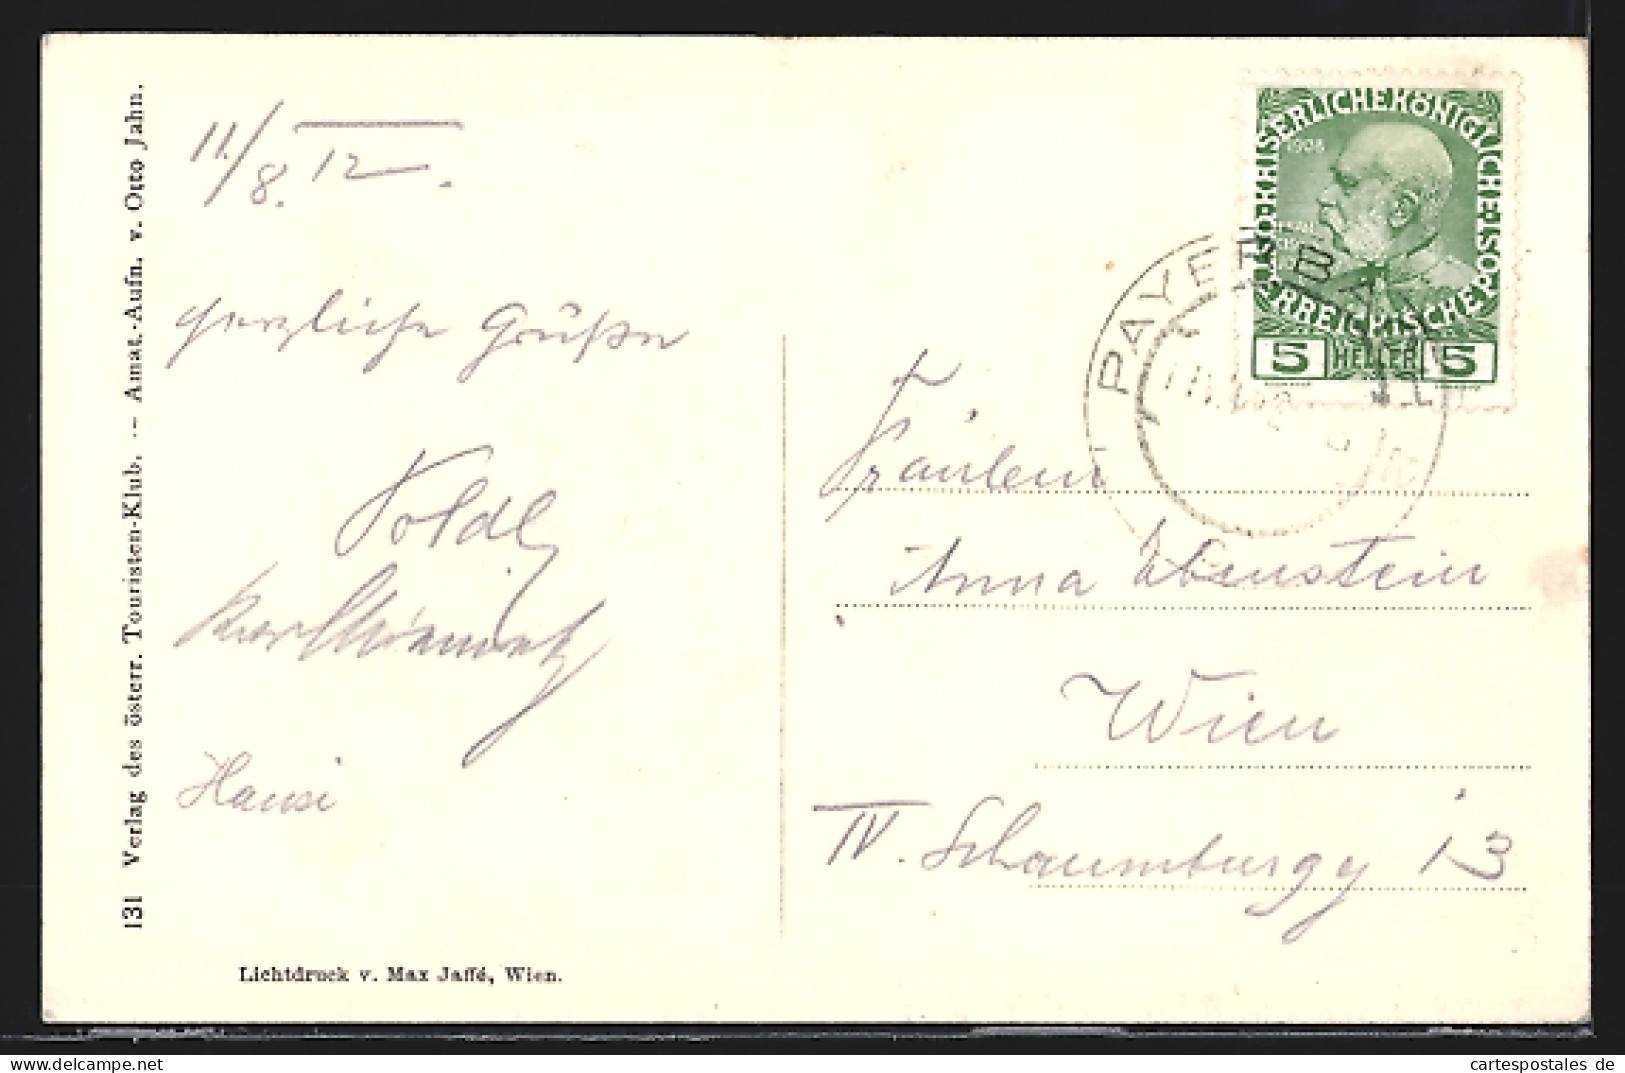 11./8. 12.
herzliche Grüße
Poldl
Karl
Hansi
131 Verlag des österr. Touristen-Klub. -- Amat.-Aufn. v. Otto Jahn.
Lichtdruck v. Max Jaffé, Wien.
KAISERLICHE KÖNIGLICHE ÖSTERREICHISCHE POST
1908
5 HELLER 5
PAYERBACH
Fräulein
Anna Ebenstein
Wien
IV. Schaumburgg 13
cartespostales de
www.cartespostales-delcampe.net